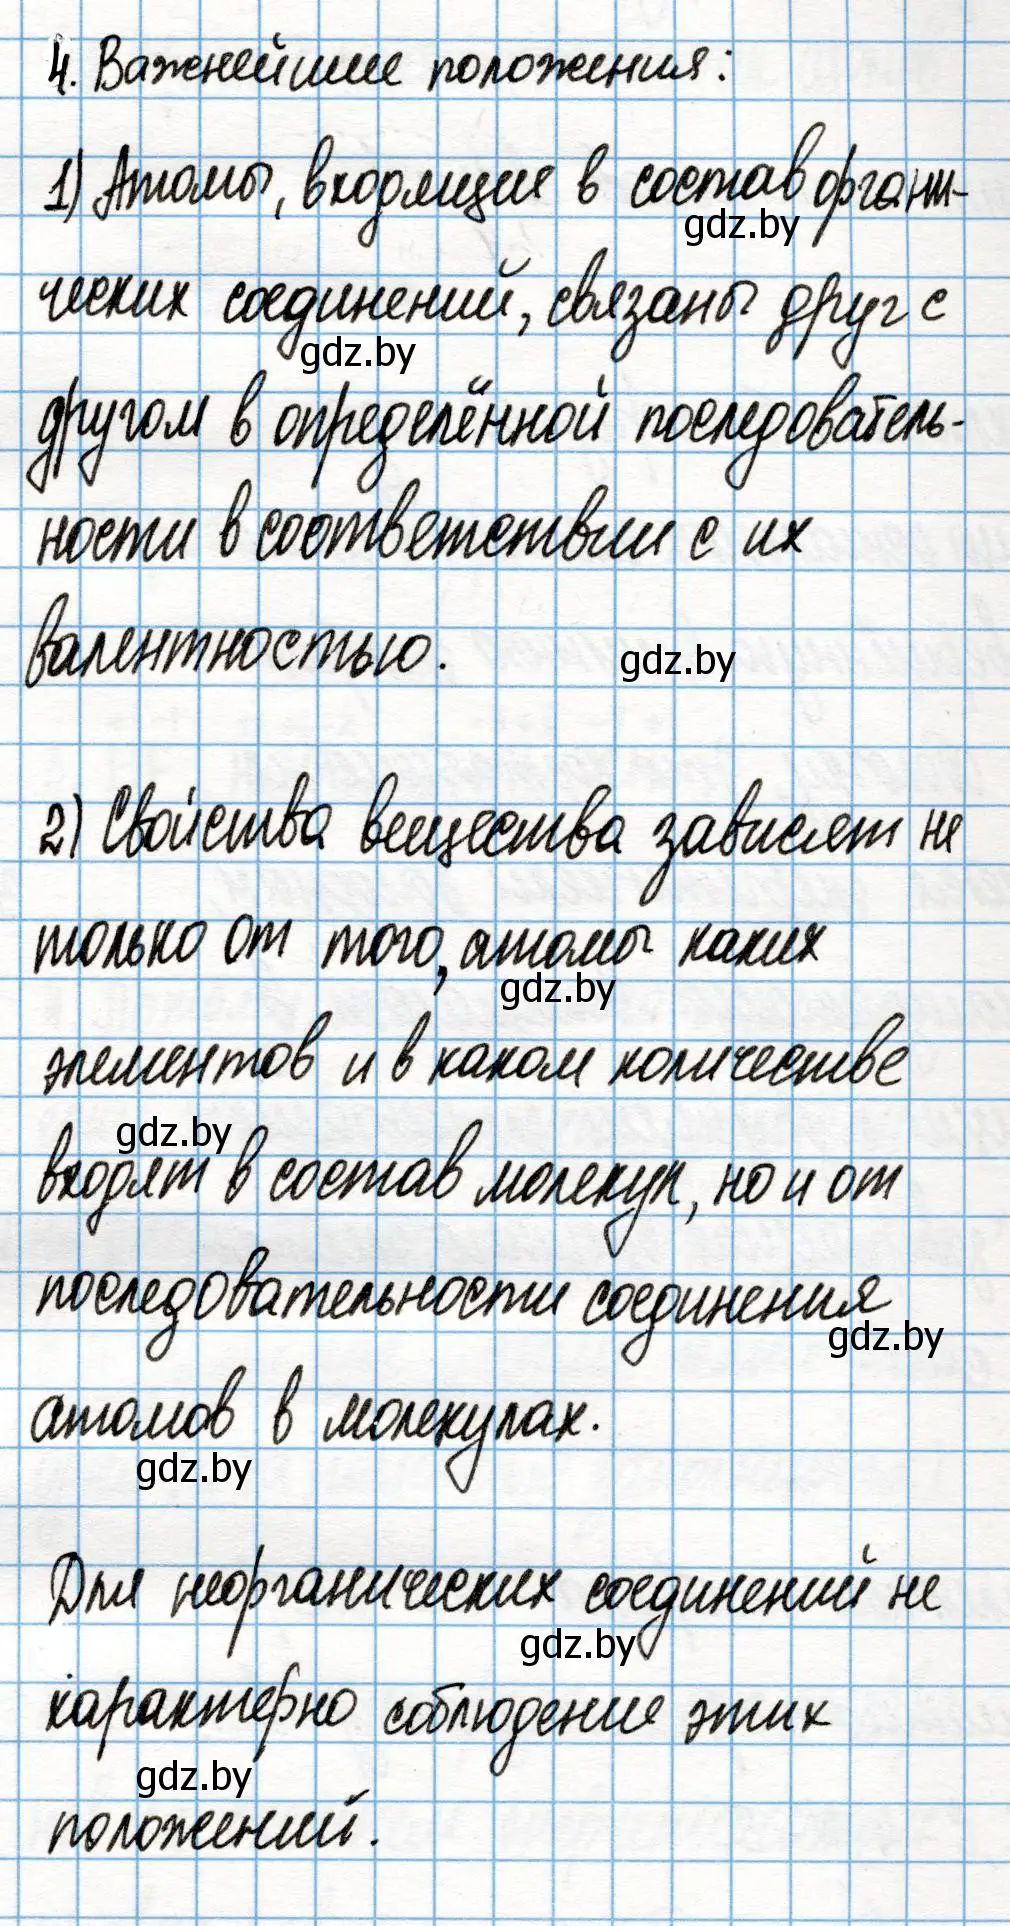 4. Важнейшие положения:
1) Атомы, входящие в состав органи-
gdz.by
ческих соединений, связаны друг с
gdz.by
другом в определённой последователь-
ности в соответствии с их
валентностью.
gdz.by
2) Свойства вещества зависят не
только от того, атомы каких
gdz.by
элементов и в каком количестве
gdz.by
входят в состав молекул, но и от
последовательности соединения
gdz.by
атомов в молекулах.
gdz.by
Для неорганических соединений не
gdz.by
характерно соблюдение этих
gdz.by
положений.